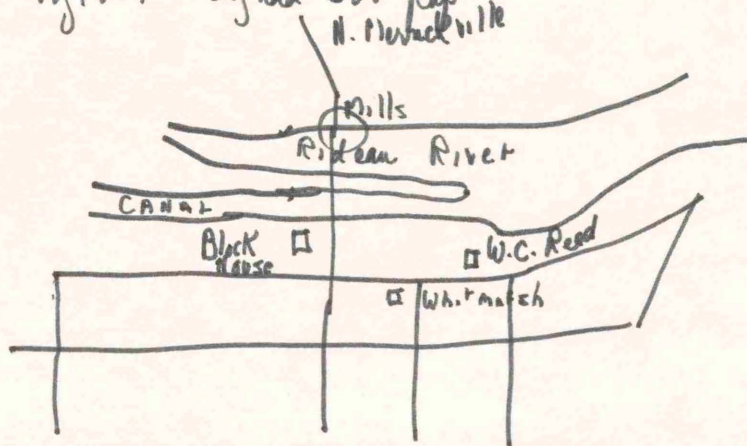 N. Merrickville
Mills
Rideau River
CANAL
Block
House
W.C. Reed
Whitmarsh